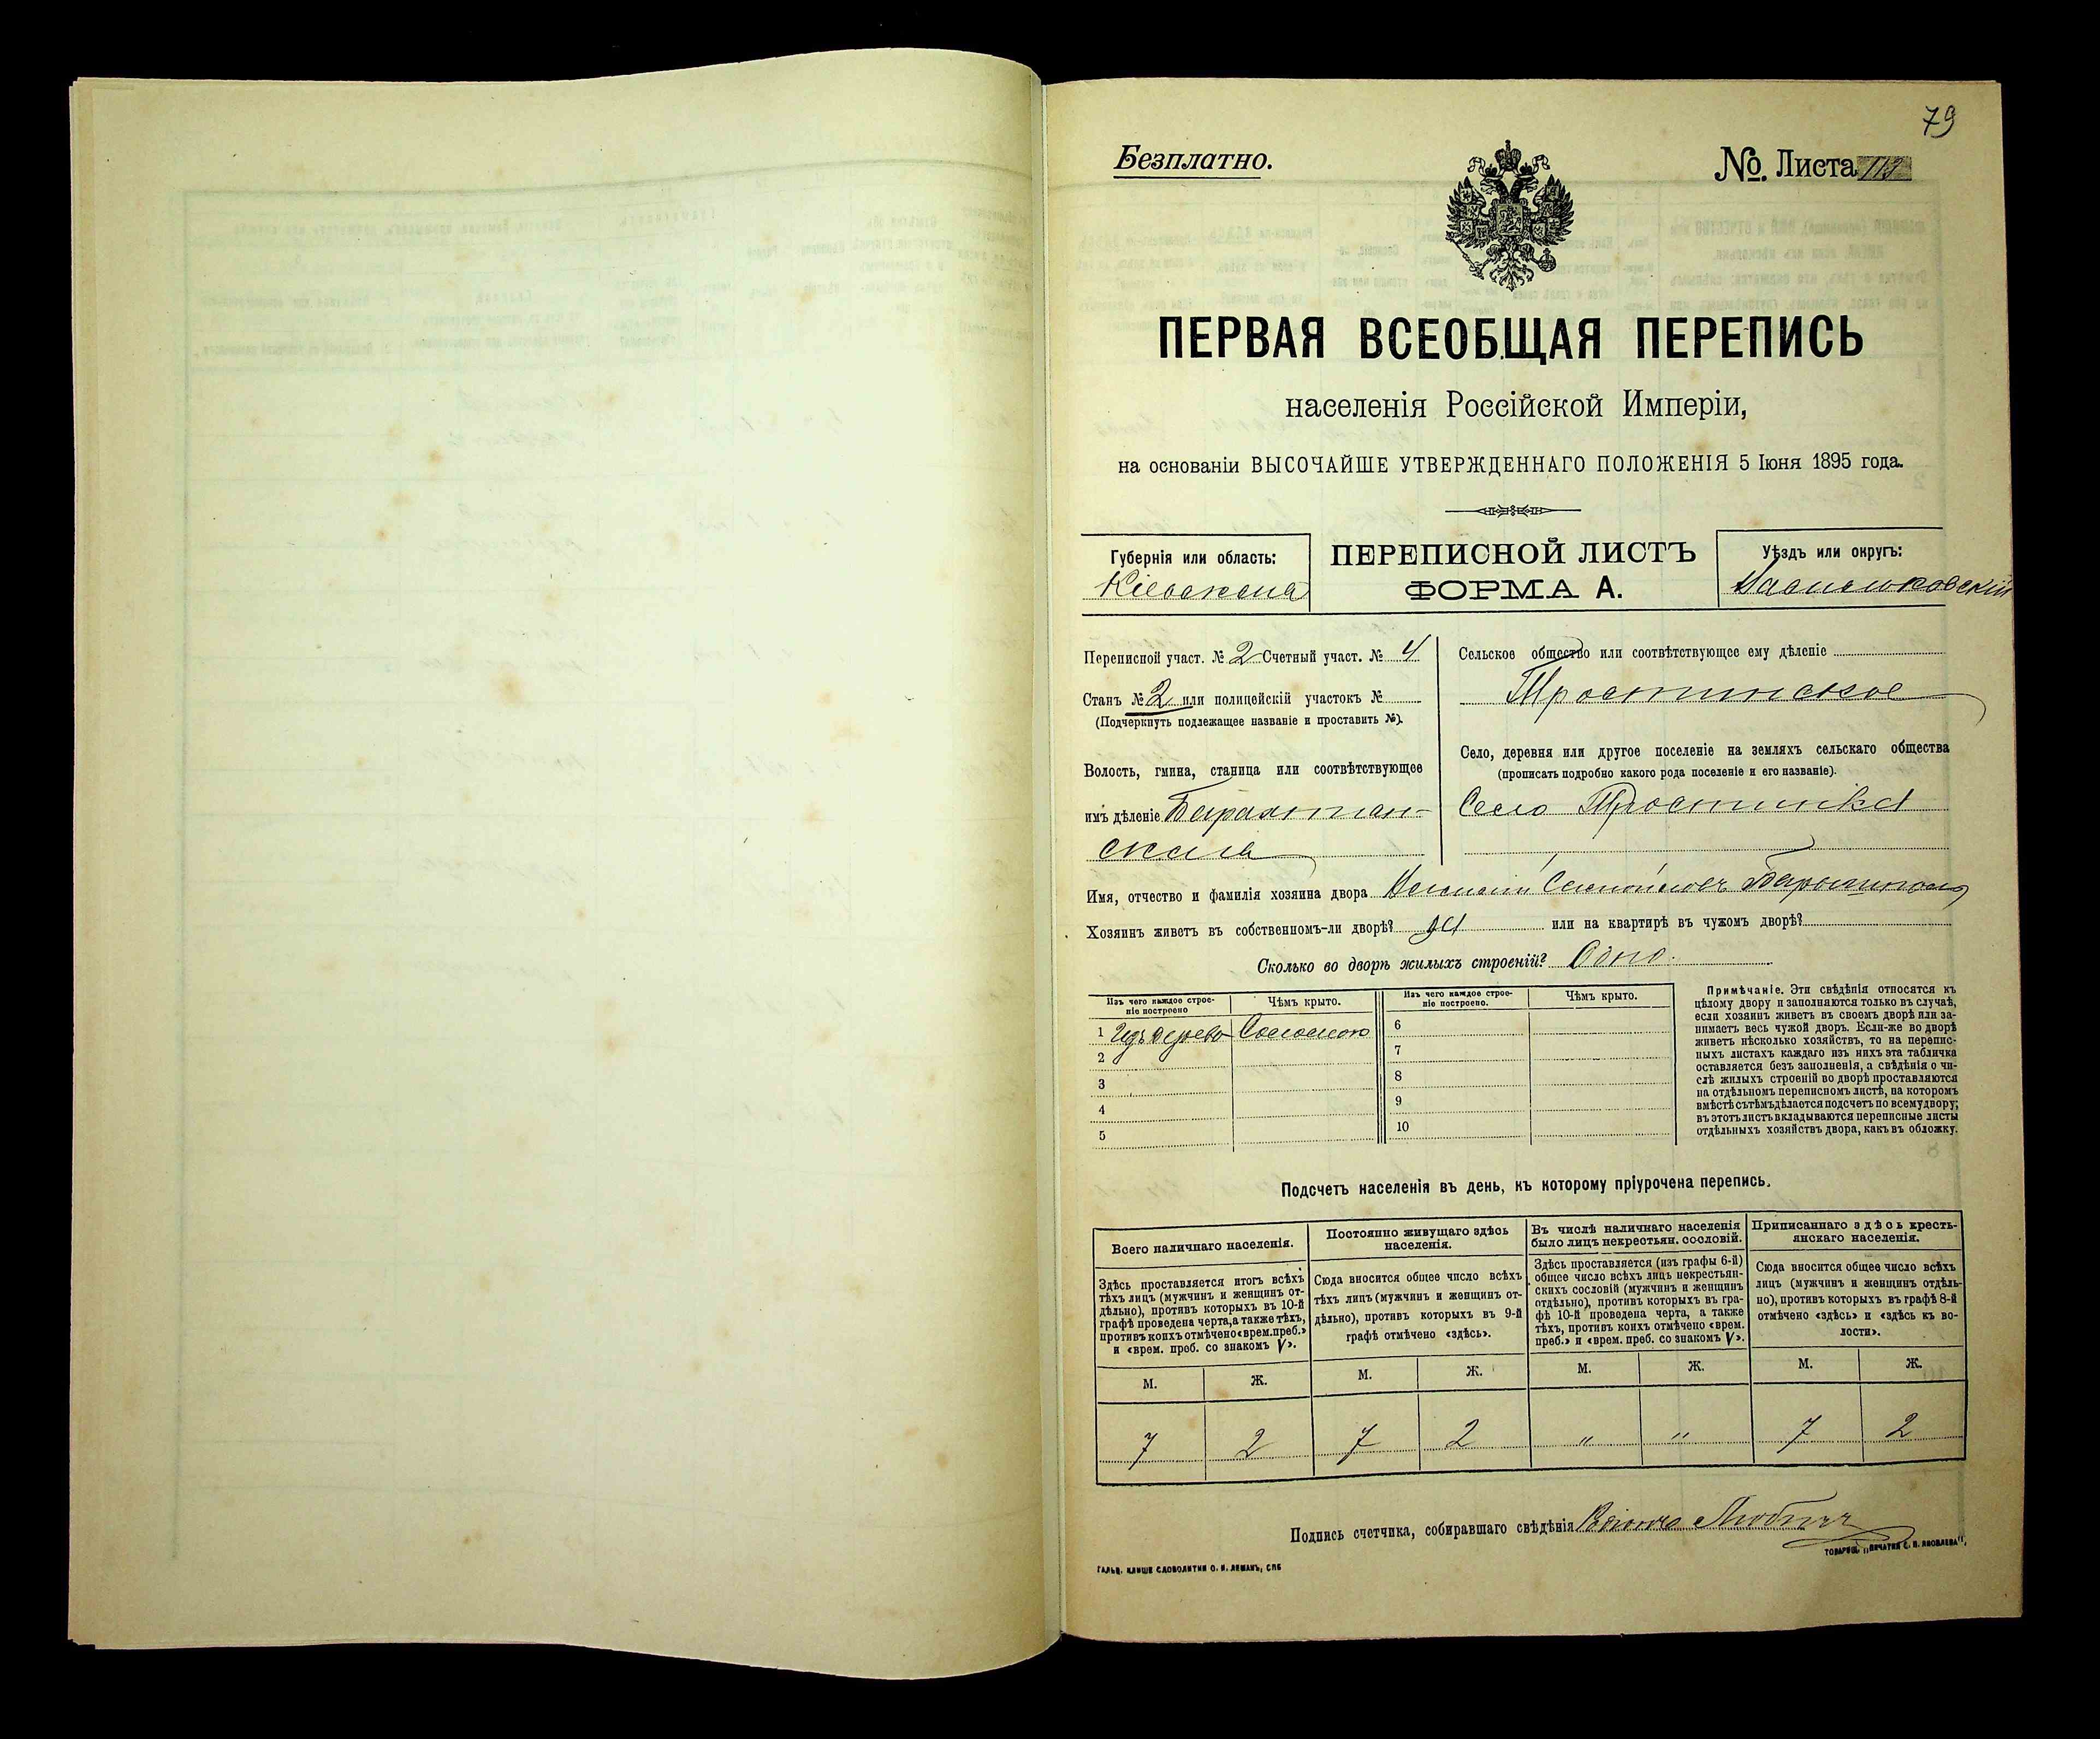 79
Безплатно.
№. Листа
ПЕРВАЯ ВСЕОБЩАЯ ПЕРЕПИСЬ
населенія Россійской Имперіи,
на основаніи ВЫСОЧАЙШЕ УТВЕРЖДЕННАГО ПОЛОЖЕНІЯ 5 Іюня 1895 года.
Губернія или область:
Кіевская
ПЕРЕПИСНОЙ ЛИСТЪ
ФОРМА А.
Уѣздъ или округъ:
Васильковскій
Переписной участ. № 2 Счетный участ. № 4
Станъ № 2 или полицейскій участокъ №
(Подчеркнуть подлежащее названіе и проставить №).
Волость, гмина, станица или соотвѣтствующее
имъ дѣленіе Барахтян-
ская
Сельское общество или соотвѣтствующее ему дѣленіе
Тростинское
Село, деревня или другое поселеніе на земляхъ сельскаго общества
(прописать подробно какого рода поселеніе и его названіе).
Село Тростинка
Имя, отчество и фамилія хозяина двора
Хозяинъ живетъ въ собственномъ-ли дворѣ? да или на квартирѣ въ чужомъ дворѣ?
Сколько во дворѣ жилыхъ строеній? Одно.
Изъ чего каждое строе-
ніе построено
Чѣмъ крыто.
Изъ чего каждое строе-
ніе построено.
Чѣмъ крыто.
1 Изъ дерева Соломою
2
3
4
5
6
7
8
9
10
Примѣчаніе. Эти свѣдѣнія относятся къ
цѣлому двору и заполняются только въ случаѣ,
если хозяинъ живетъ въ своемъ дворѣ или за-
нимаетъ весь чужой дворъ. Если-же во дворѣ
живетъ нѣсколько хозяйствъ, то на перепис-
ныхъ листахъ каждаго изъ нихъ эта табличка
оставляется безъ заполненія, а свѣдѣнія о чи-
слѣ жилыхъ строеній во дворѣ проставляются
на отдѣльномъ переписномъ листѣ, на которомъ
вмѣстѣ съ тѣмъ дѣлается подсчетъ по всему двору;
въ этотъ листъ вкладываются переписные листы
отдѣльныхъ хозяйствъ двора, какъ въ обложку.
Подсчетъ населенія въ день, къ которому пріурочена перепись.
Всего наличнаго населенія.
Здѣсь проставляется итогъ всѣхъ
тѣхъ лицъ (мужчинъ и женщинъ от-
дѣльно), противъ которыхъ въ 10-й
графѣ проведена черта, а также тѣхъ,
противъ коихъ отмѣчено «врем. преб.»
и «врем. преб. со знакомъ V».
Постоянно живущаго здѣсь
населенія.
Сюда вносится общее число всѣхъ
тѣхъ лицъ (мужчинъ и женщинъ от-
дѣльно), противъ которыхъ въ 9-й
графѣ отмѣчено «здѣсь».
Въ числѣ наличнаго населенія
было лицъ некрестьян. сословій.
Здѣсь проставляется (изъ графы 6-й)
общее число всѣхъ лицъ некрестьян-
скихъ сословій (мужчинъ и женщинъ
отдѣльно), противъ которыхъ въ гра-
фѣ 10-й проведена черта, а также
тѣхъ, противъ коихъ отмѣчено «врем.
преб.» и «врем. преб. со знакомъ V».
Приписаннаго здѣсь кресть-
янскаго населенія.
Сюда вносится общее число всѣхъ
лицъ (мужчинъ и женщинъ отдѣль-
но), противъ которыхъ въ графѣ 8-й
отмѣчено «здѣсь» и «здѣсь къ во-
лости».
М. Ж. М. Ж. М. Ж. М. Ж.
7 2 7 2 " " 7 2
Подпись счетчика, собиравшаго свѣдѣнія
ГАЛЬВ. КЛИШЕ СЛОВОЛИТНИ О. И. ЛЕМАНЪ, СПБ
ТОВАРИЩ. „ПЕЧАТНЯ С. П. ЯКОВЛЕВА".